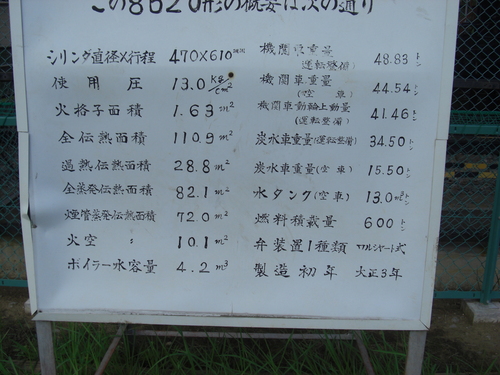 この8620形の概要は次の通り
シリンダ直径×行程 470×610 ㍉
使用圧 13.0 kg/cm²
火格子面積 1.63 m²
全伝熱面積 110.9 m²
過熱伝熱面積 28.8 m²
全蒸発伝熱面積 82.1 m²
煙管蒸発伝熱面積 72.0 m²
火空 〃 10.1 m²
ボイラー水容量 4.2 m³
機関車重量(運転整備) 48.83 トン
機関車重量(空車) 44.54 トン
機関車動輪上動量(運転整備) 41.46 トン
炭水車重量(運転整備) 34.50 トン
炭水車重量(空車) 15.50 トン
水タンク(空車) 13.0 m³
燃料積載量 600 トン
弁装置1種類 ワルシャート式
製造初年 大正3年